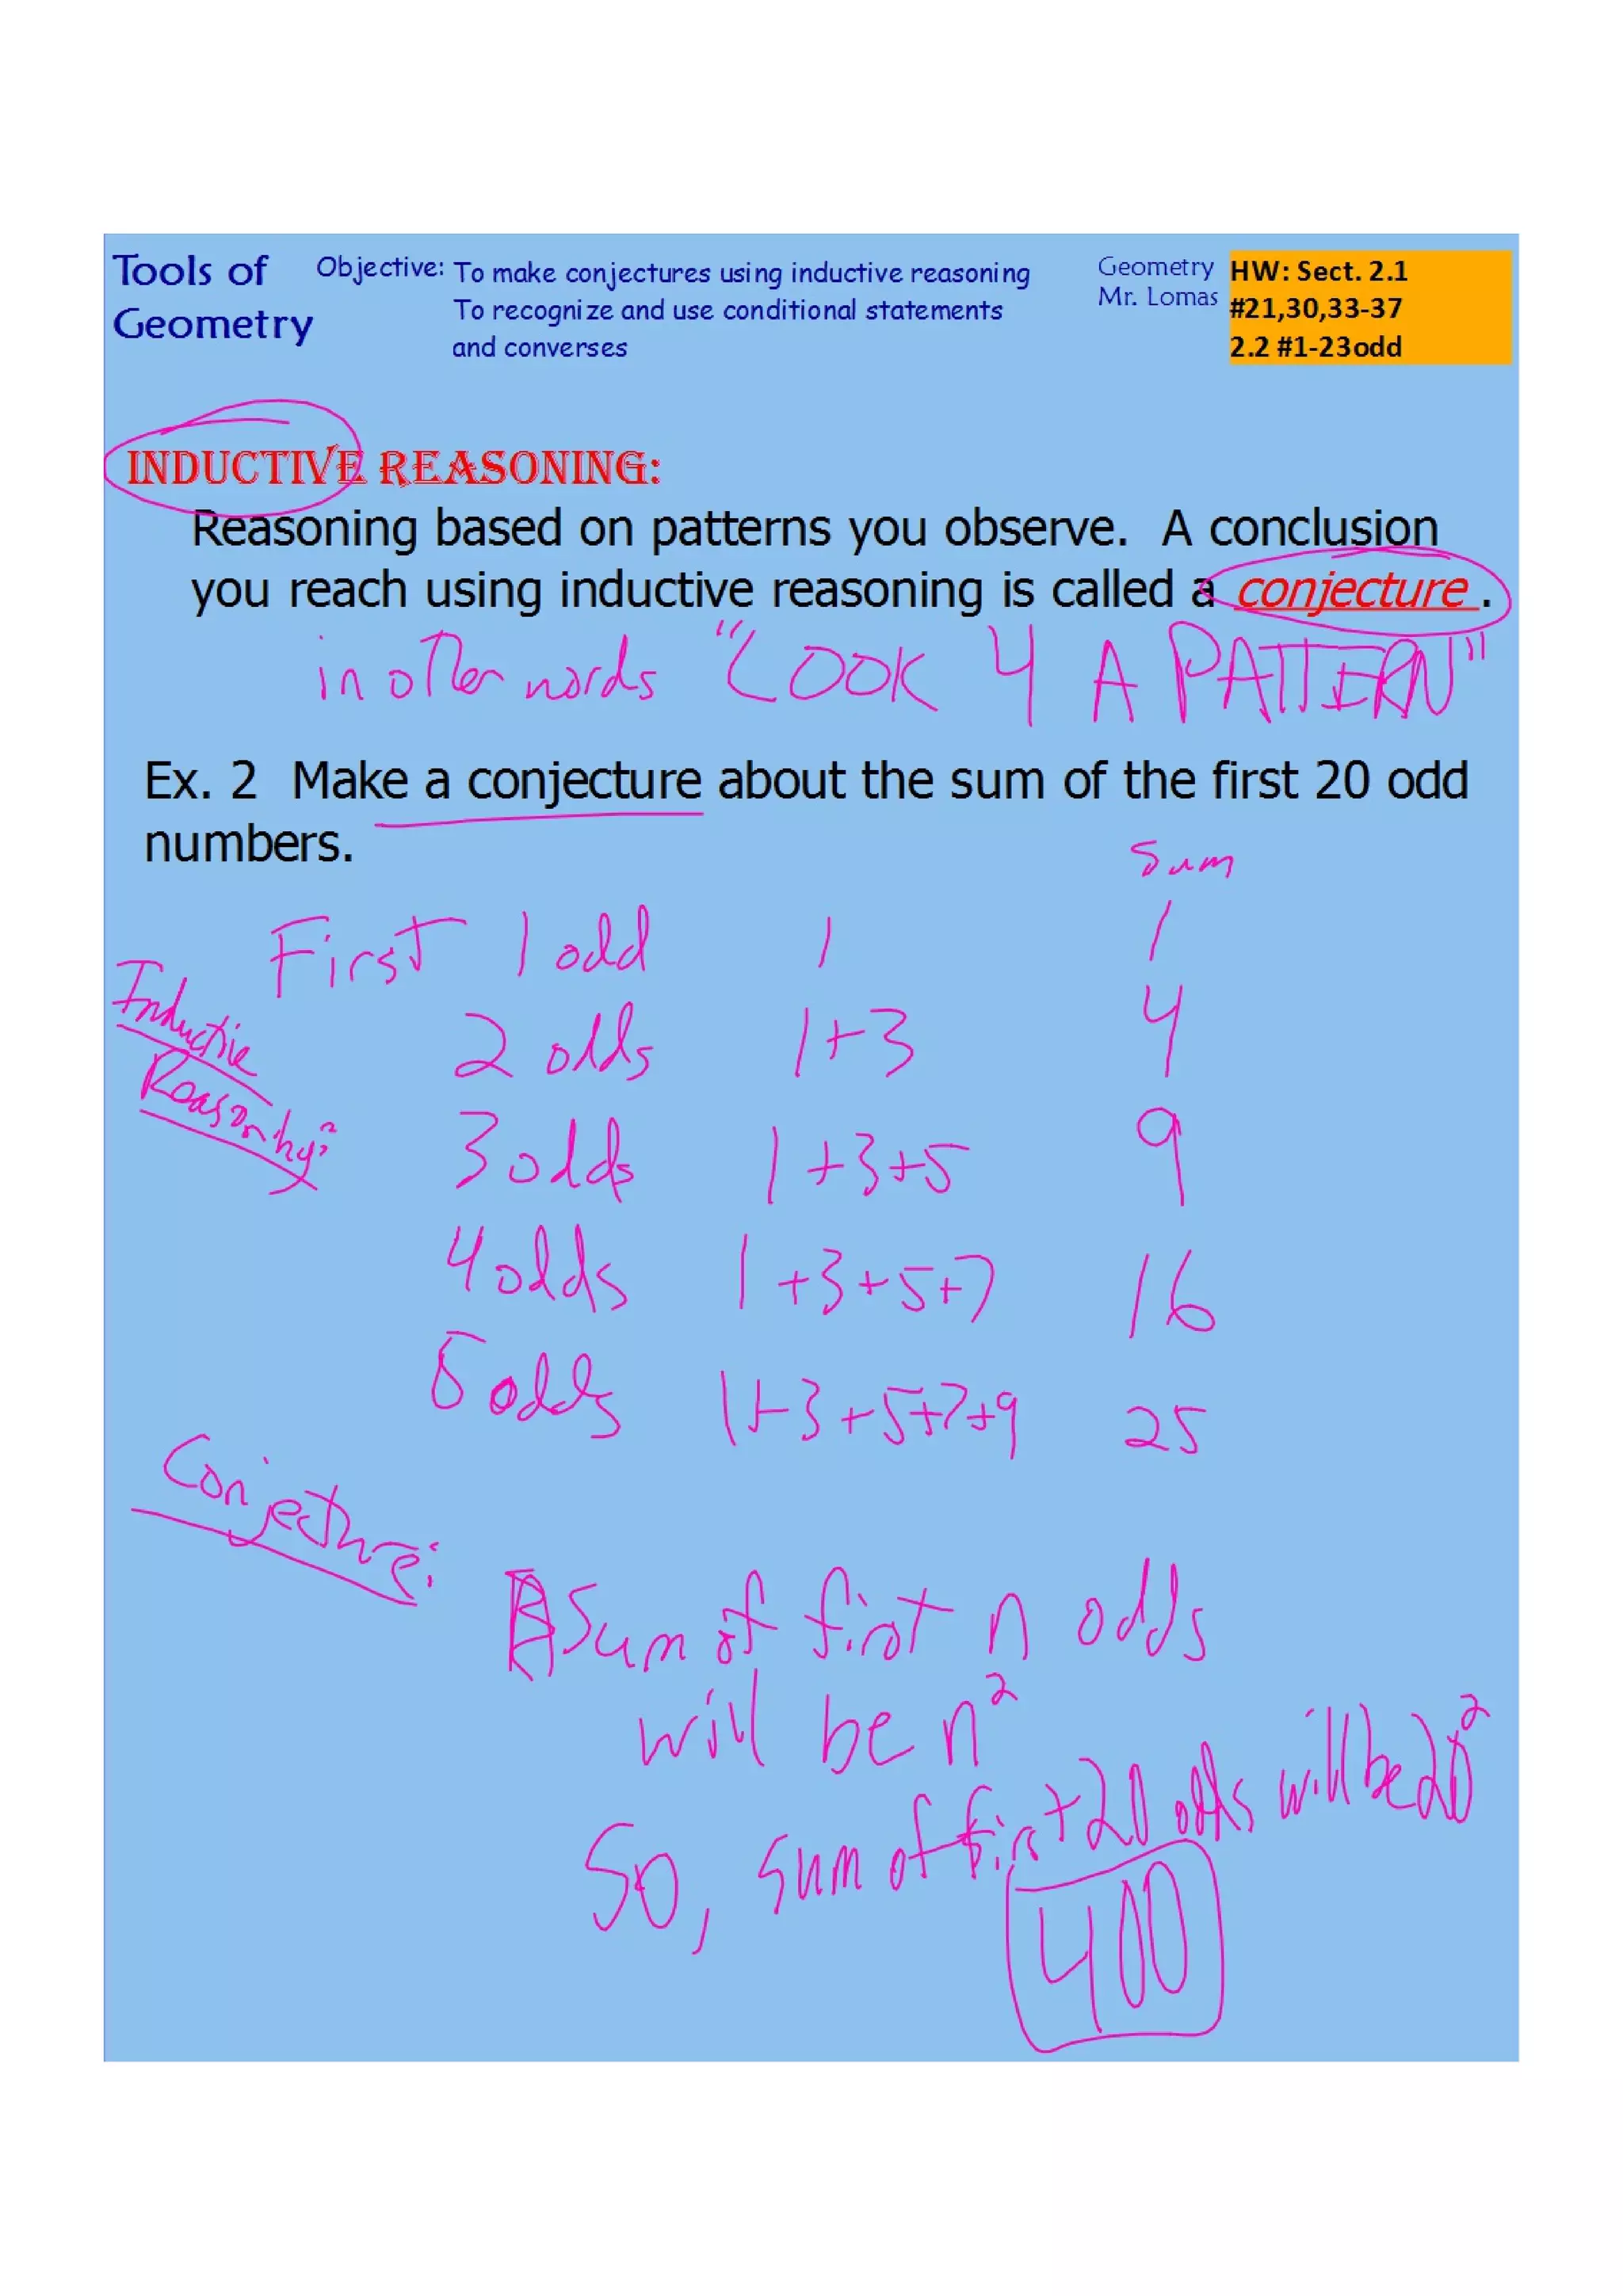 Tools of
Geometry
Objective: To make conjectures using inductive reasoning
To recognize and use conditional statements
and converses
Geometry
Mr. Lomas
HW: Sect. 2.1
#21,30,33-37
2.2 #1-23odd
INDUCTIVE REASONING:
Reasoning based on patterns you observe. A conclusion
you reach using inductive reasoning is called a conjecture.
in other words "LOOK 4 A PATTERN"
Ex. 2 Make a conjecture about the sum of the first 20 odd
numbers.
Sum
First 1 odd 1 1
Inductive
Reasoning:
2 odds 1+3 4
3 odds 1+3+5 9
4 odds 1+3+5+7 16
5 odds 1+3+5+7+9 25
Conjecture:
Sum of first n odds
will be n²
So, sum of first 20 odds will be 20²
400